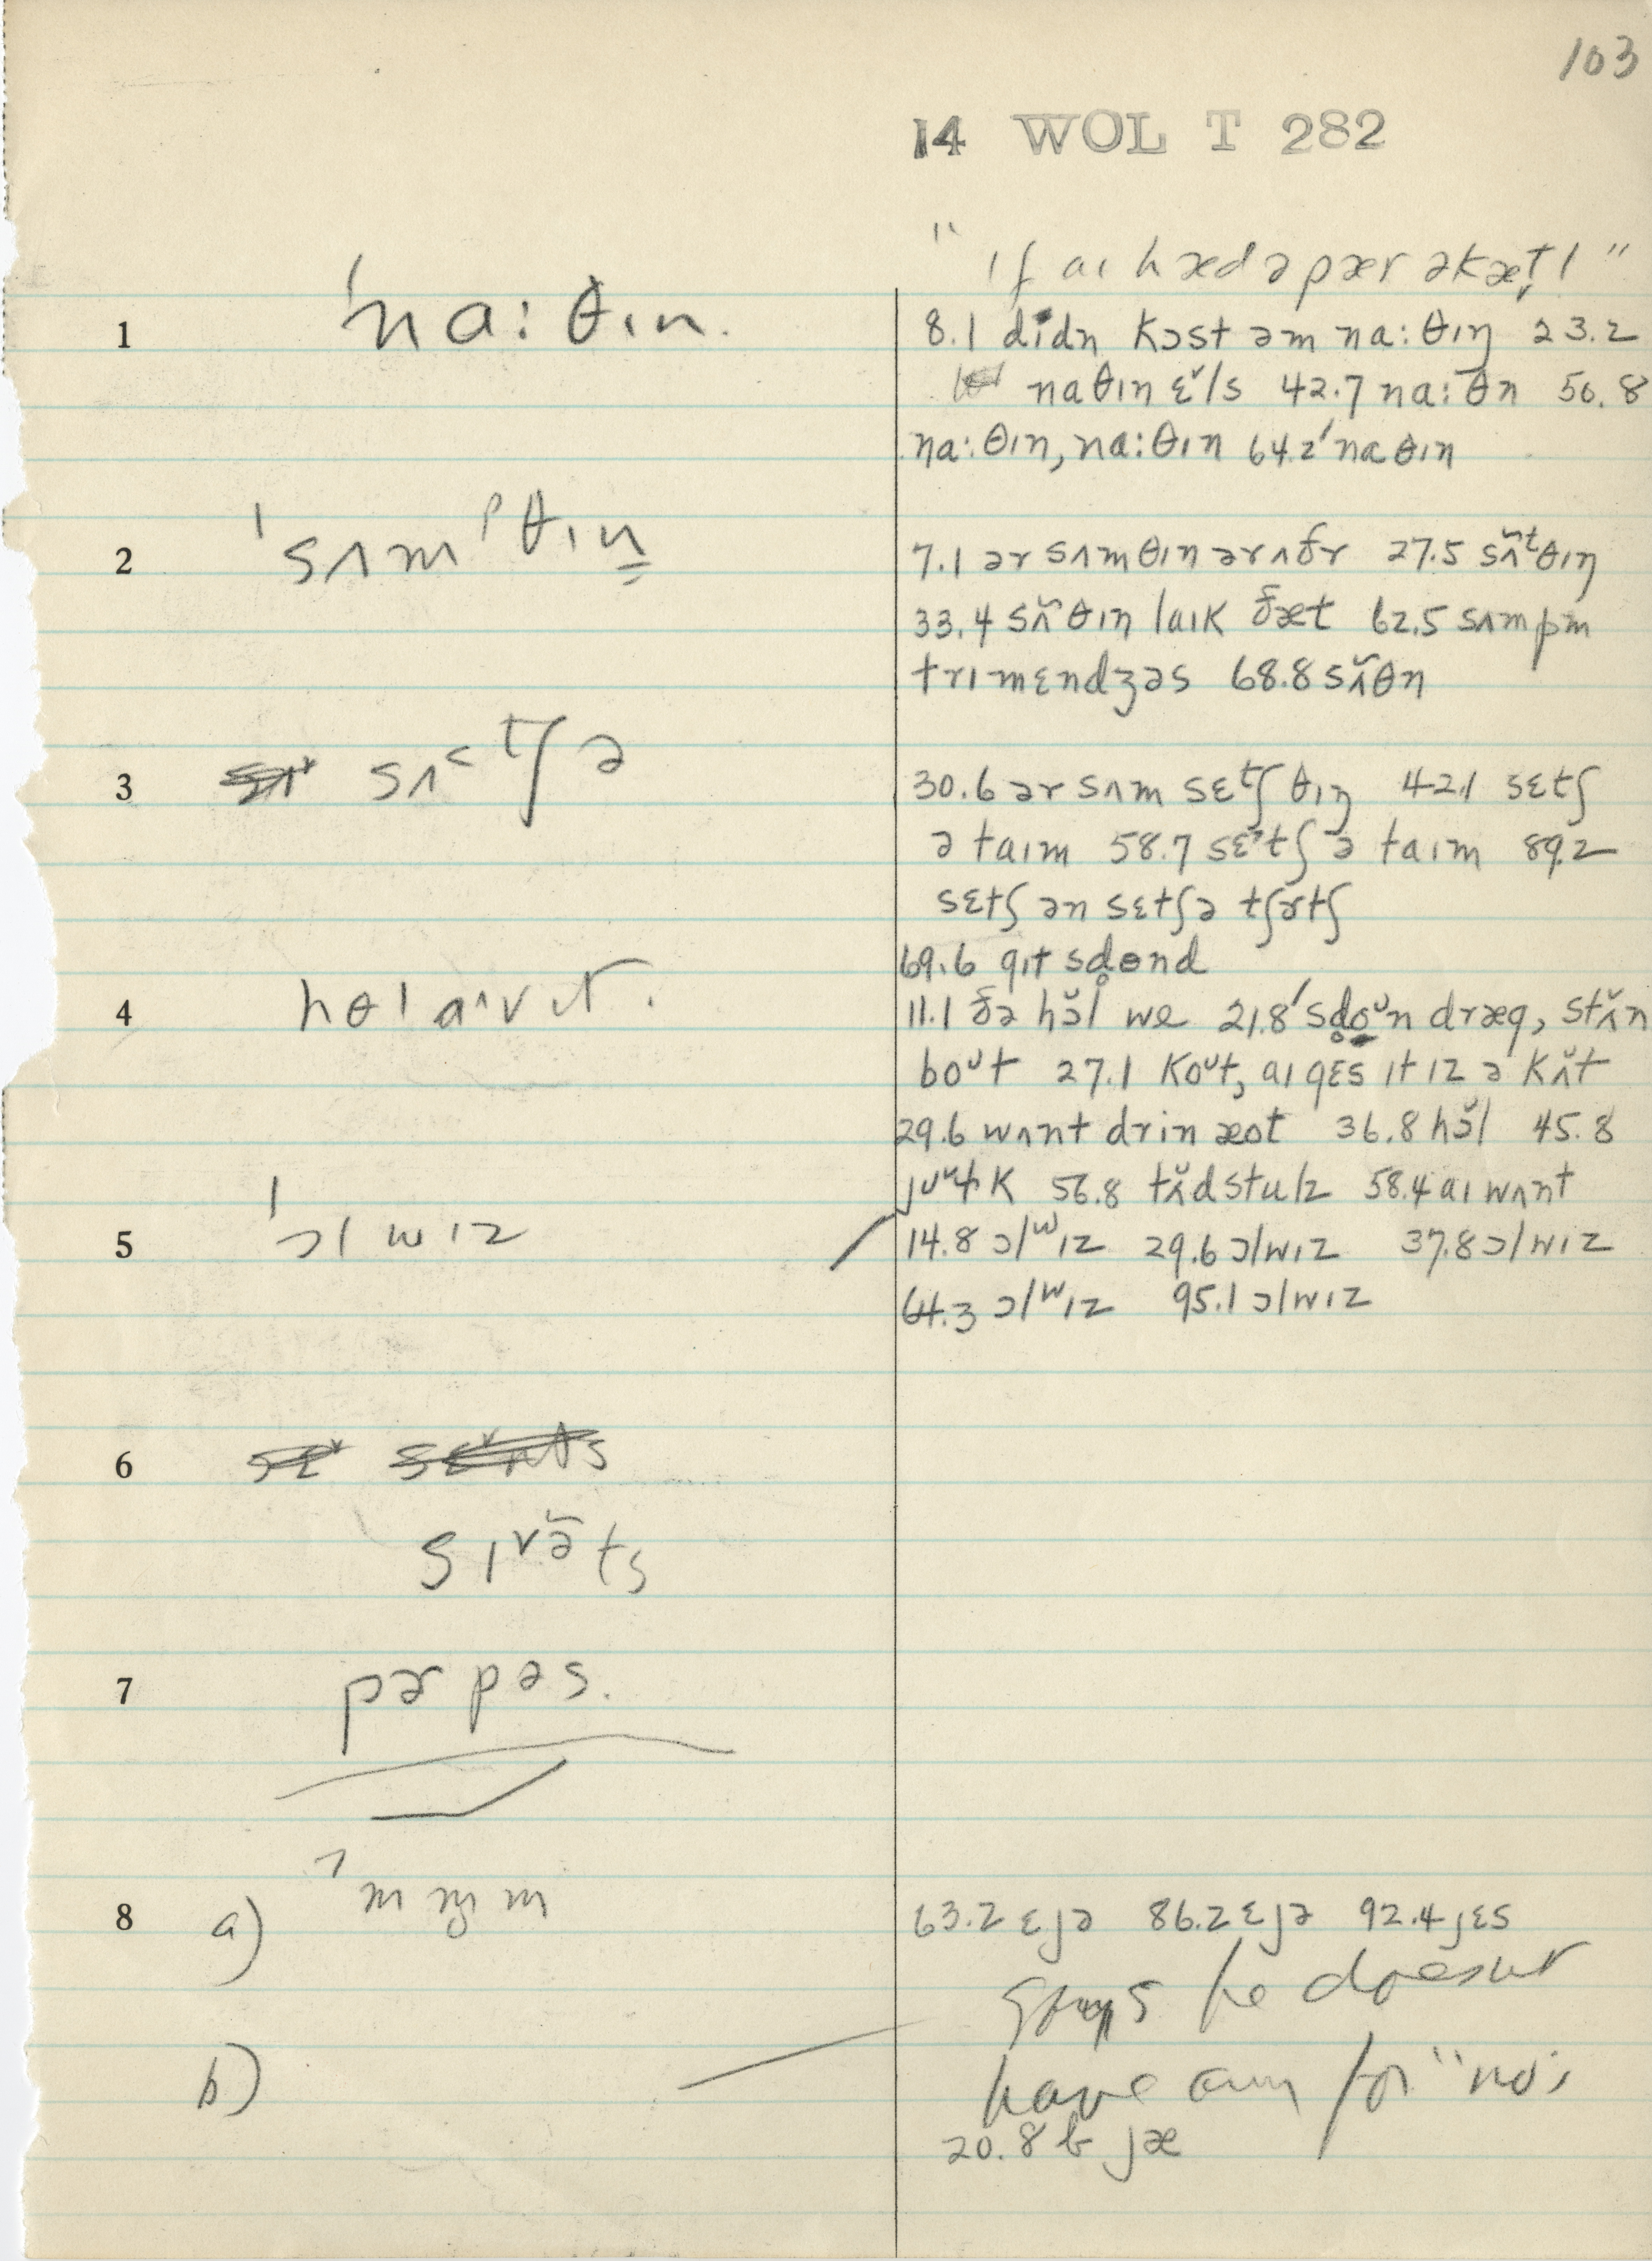 103
14 WOL T 282
"ıf aı hæd ə pær əkæt̬l"
1 ˈna:θın. 8.1 dıdn̩ kɔst əm na:θıŋ 23.2
naθın ɛ˅ls 42.7 na:θn 50.8
na:θın, na:θın 64.2 ˈnaθın
2 ˈsʌmᵖθın 7.1 ər sʌmθın ərʌðr 27.5 sʌ̃ᵗθıŋ
33.4 sʌ̃θın laık ðæt 62.5 sʌmpm
trımɛndʒəs 68.8 sʌ̃θn
3 sʌ˂tʃə 30.6 ər sʌm sɛtʃ θıŋ 42.1 sɛtʃ
ə taım 58.7 sɛ˃tʃ ə taım 89.2
sɛtʃ ən sɛtʃə tʃɝtʃ
69.6 gıt sd̥ɵnd
4 11.1 ðə hɔ̆l we 21.8 ˈsd̥oᵘn dræg, stʌ̆n
boᵘt 27.1 koᵘt, aı gɛs ıt ız ə kʌ̆t
29.6 wʌnt drin æot 36.8 hɔ̆l 45.8
56.8 tʌ̆dstulz 58.4 aı wʌnt
5 ˈɔlwız 14.8 ɔlʷız 29.6 ɔlwız 37.8 ɔlwız
64.3 ɔlʷız 95.1 ɔlwız
6
sıᵛə̃ts
7 pɝpəs.
8 a) 63.2 ɛjə 86.2 ɛjə 92.4 jɛs
says he doesn't
b) have any for "no"
20.8 b jæ